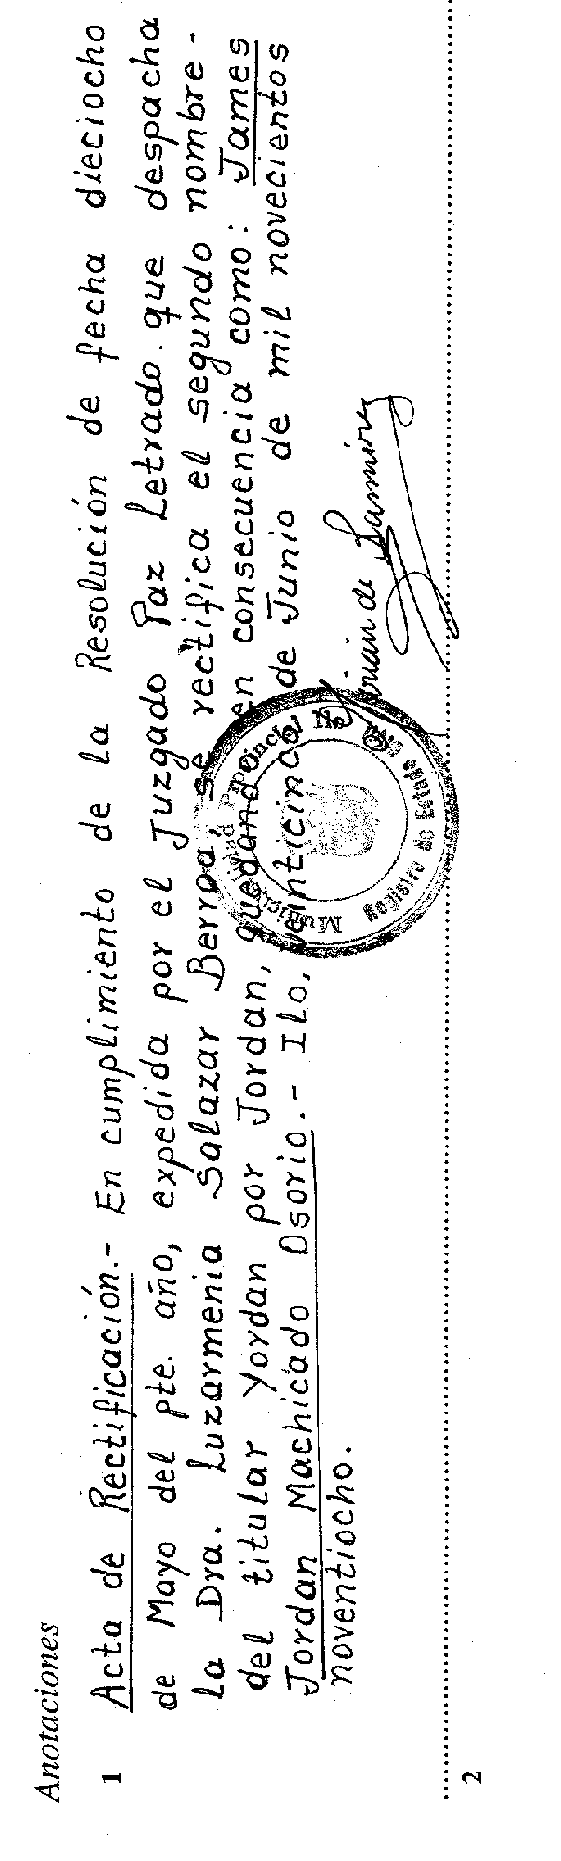 Anotaciones
1 Acta de Rectificación.- En cumplimiento de la Resolución de fecha dieciocho
de Mayo del pte. año, expedida por el Juzgado Paz Letrado que despacha
la Dra. Luzarmenia Salazar Berroa, se rectifica el segundo nombre -
del titular Yordan por Jordan, quedando en consecuencia como: James
Jordan Machicado Osorio.- Ilo, veinticinco de Junio de mil novecientos
noventiocho.
Municipalidad Provincial Ilo
Registro de Estado Civil
de Ramírez
2